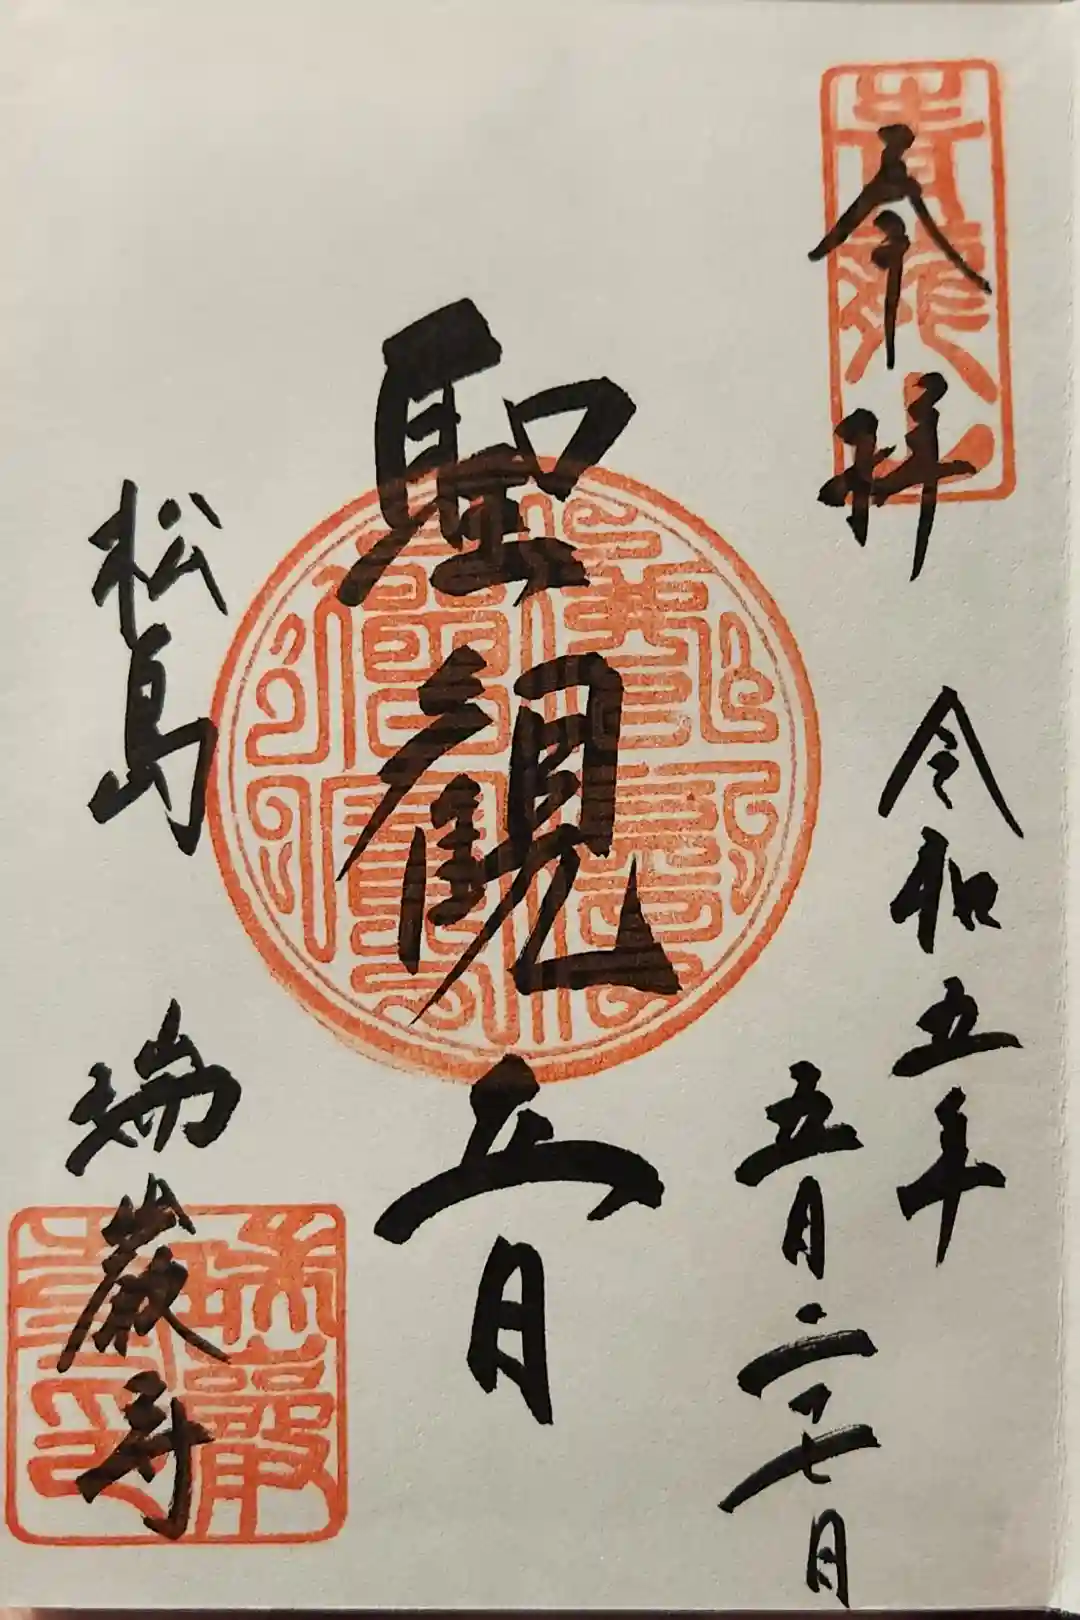 青龍山
奉拝
令和五年
五月二十七日
聖観音
松島 瑞巌寺
瑞巖寺印